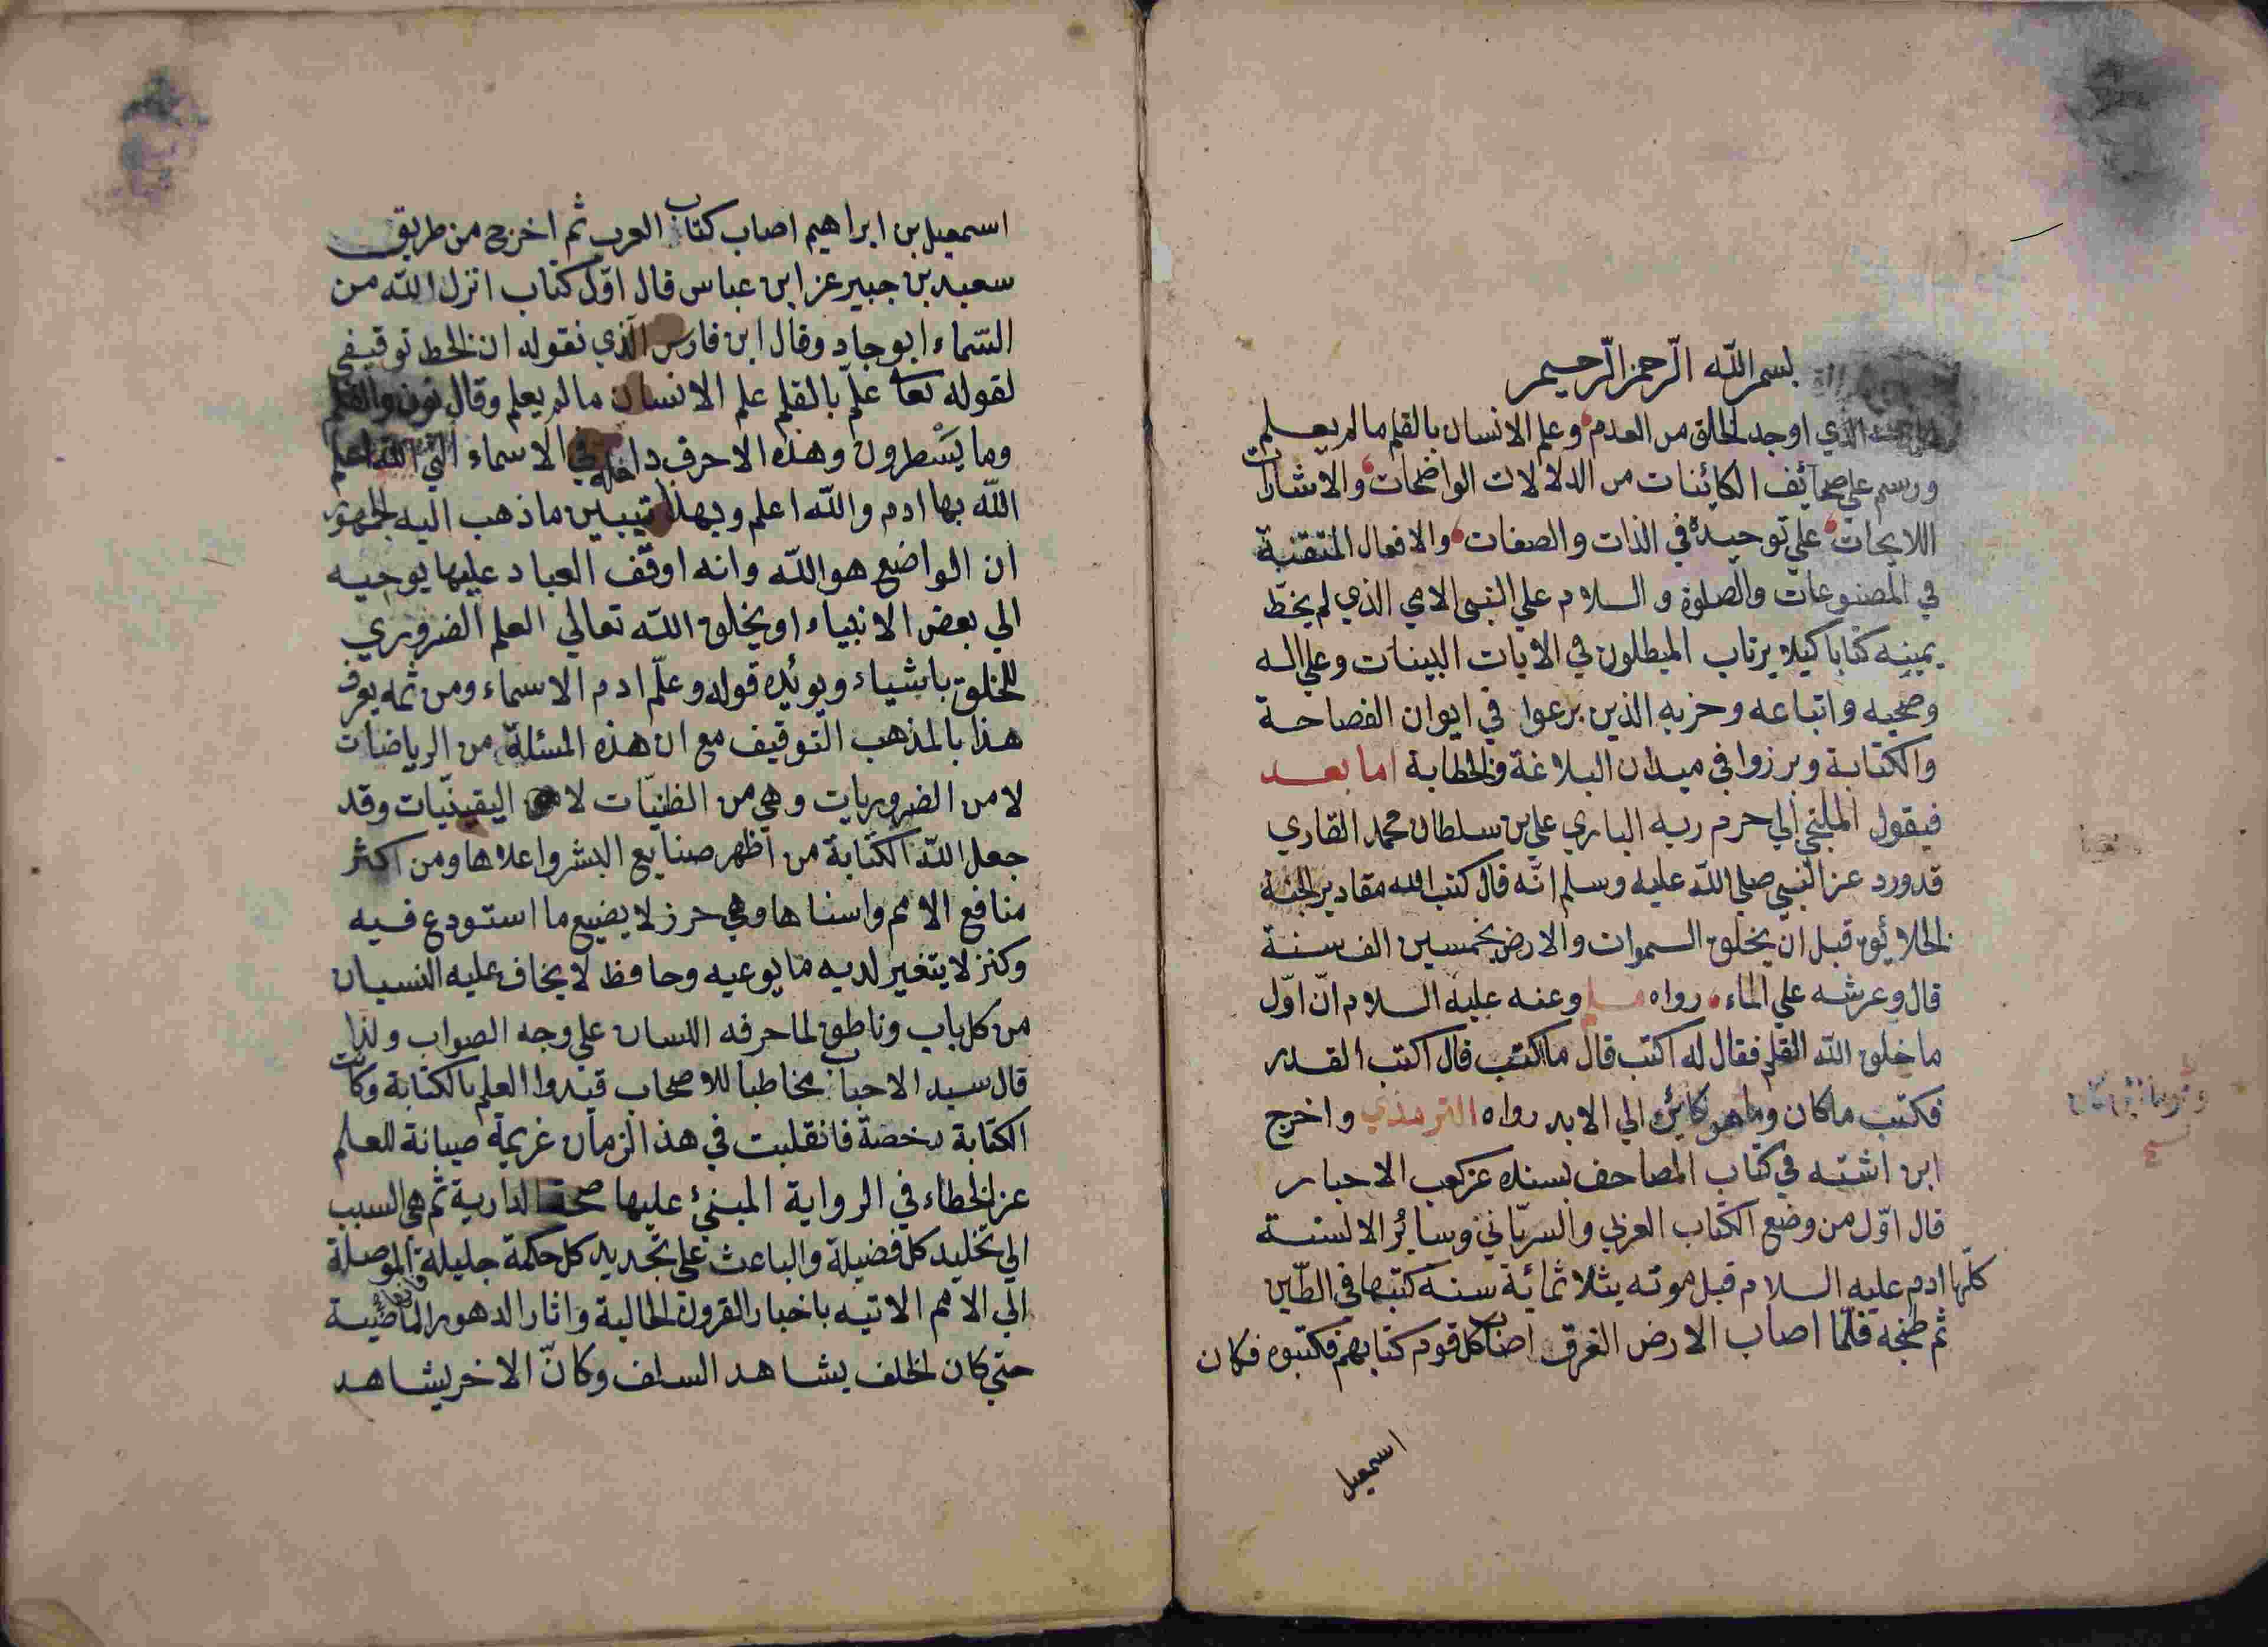 بسم الله الرحمن الرحيم
الذي اوجد الخلق من العدم وعلم الانسان بالقلم ما لم يعلم
ورسم علي صحائف الكائنات من الدلالات الواضحات والاشارات
اللايحات علي توحيده في الذات والصفات والافعال المتقنة
في المصنوعات والصلوة والسلام علي النبي الامي الذي لم يخط
بيمينه كتابا كيلا يرتاب المبطلون في الايات البينات وعلي اله
وصحبه واتباعه وحزبه الذين برعوا في ايوان الفصاحة
والكتابة وبرزوا في ميدان البلاغة والخطابة اما بعد
فيقول الملتجي الي حرم ربه الباري علي بن سلطان محمد القاري
قد ورد عن النبي صلي الله عليه وسلم انه قال كتب الله مقادير
الخلائق قبل ان يخلق السموات والارض بخمسين الف سنة
قال وعرشه علي الماء رواه مسلم وعنه عليه السلام انّ اوّل
ما خلق الله القلم فقال له اكتب قال ما اكتب قال اكتب القدر
فكتب ما كان وما هو كائن الي الابد رواه الترمذي واخرج
ابن اشته في كتاب المصاحف بسنده عن كعب الاحبار
قال اوّل من وضع الكتاب العربي والسرياني وسائر الالسنة
كلّها ادم عليه السلام قبل موته بثلاثمائة سنة كتبها في الطّين
ثم طبخه فلمّا اصاب الارض الغرق اصاب كل قوم كتابهم فكتبوه فكان
اسمعيل
اسمعيل بن ابراهيم اصاب كتاب العرب ثم اخرج من طريق
سعيد بن جبير عن ابن عباس قال اوّل كتاب انزل الله من
السّماء ابو جاد وقال ابن فارس الّذي نقوله ان الخط توقيفي
لقوله تعا علّم بالقلم علم الانسان ما لم يعلم وقال نون والقلم
وما يسْطرون وهذه الاحرف داخلة في الاسماء التي اعلم
الله بها ادم والله اعلم وبهذا تبيين ما ذهب اليه الجمهور
ان الواضع هو الله وانه اوقف العباد عليها بوحيه
الي بعض الانبياء او بخلق الله تعالي العلم الضروري
للخلق باشياء ويوئده قوله وعلّم ادم الاسماء ومن ثمه يعرف
هذا بالمذهب التوقيف مع ان هذه المسئلة من الرياضات
لا من الضروريات وهي من الظنيّات لا اليقينيّات وقد
جعل الله الكتابة من اظهر صنايع البشر واعلاها ومن اكثر
منافع الامم واسناها وهي حرز لا يضيع ما استودع فيه
وكنز لا يتغير لديه ما يوعيه وحافظ لا يخاف عليه النسيان
من كل باب وناطق لما حرفه اللسان علي وجه الصواب ولذا
قال سيد الاحباب مخاطبا للاصحاب قيدوا العلم بالكتابة وكانت
الكتابة رخصة فانقلبت في هذا الزمان عزيمة صيانة للعلم
عن الخطاء في الرواية المبنئ عليها صحة الدارية ثم هي السبب
الي تخليد كل فضيلة والباعث علي تجديد كل حكمة جليلة الموصلة
الي الامم الاتيه باخبار القرون الخالية واثار الدهور الماضية
حتي كان الخلف يشاهد السلف وكانّ الاخر يشاهد